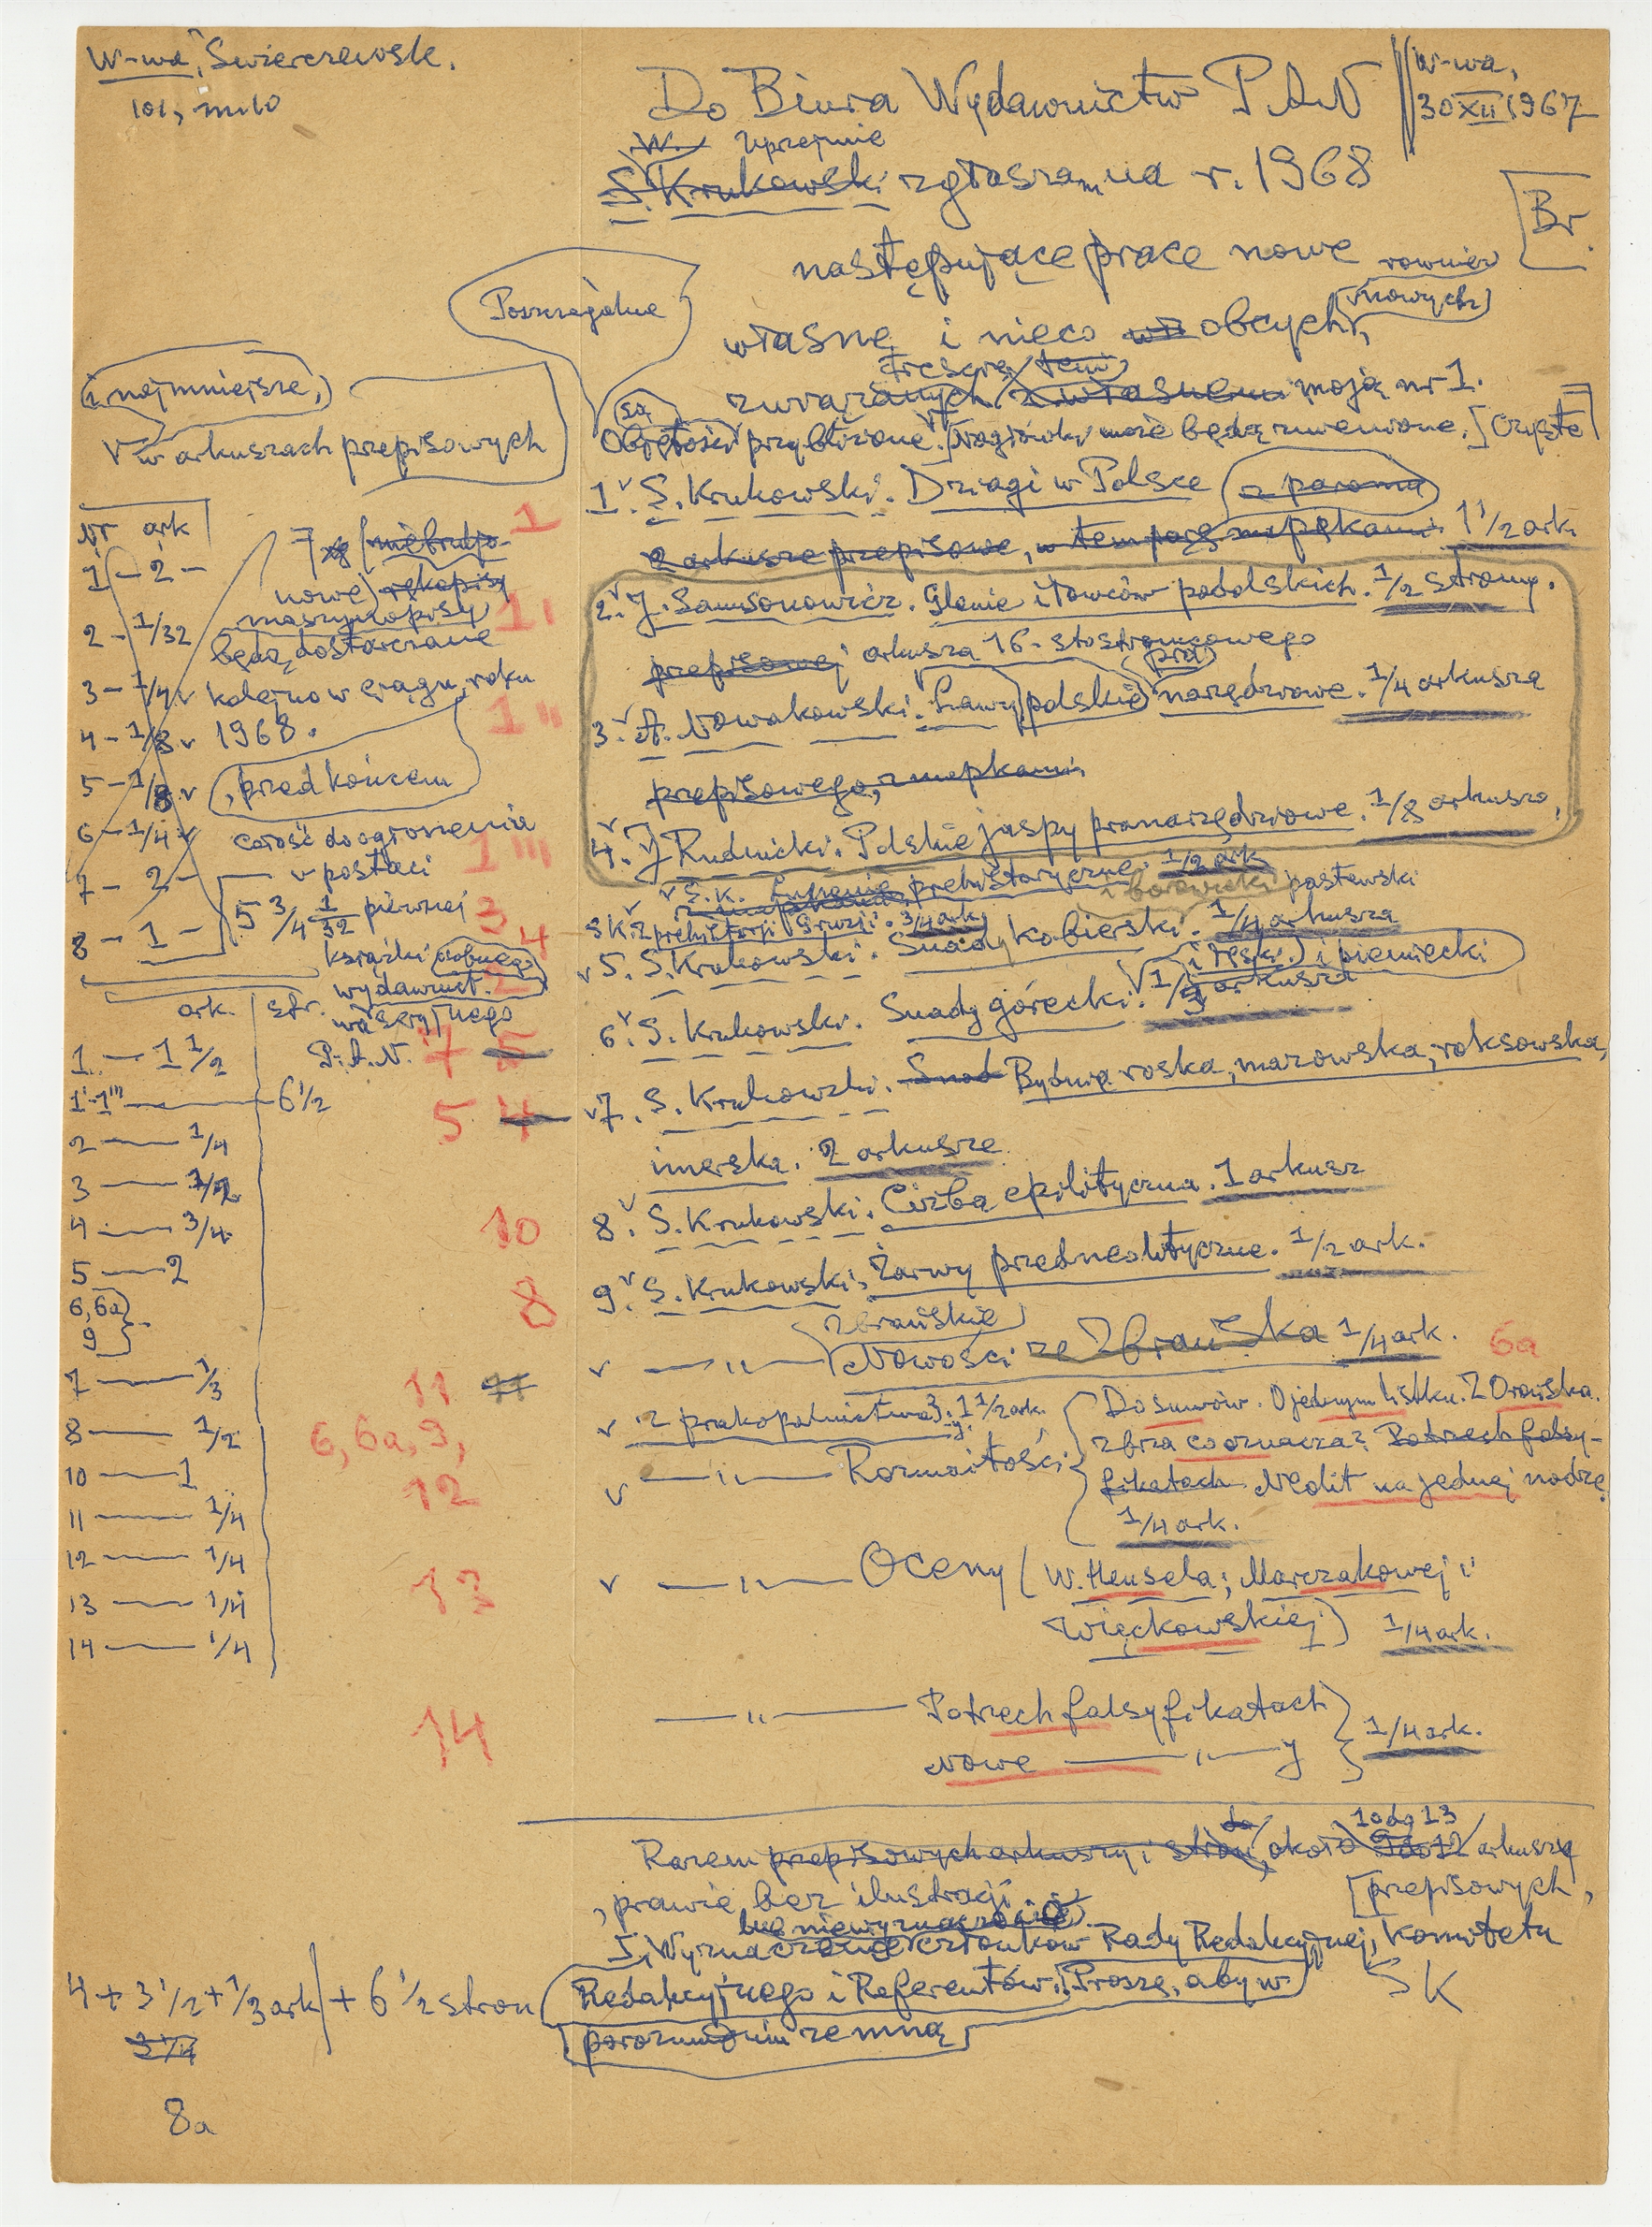 W-wa, Świerczewsk.
101, m. 10
Do Biura Wydawnictw P.A.N
W-wa,
30 XII 1967
W. uprzejmie
S. Krukowski zgłaszam na r. 1968
Br.
następujące prace nowe
również
nowych
własne i nieco obcych,
Poszczególne
treścią temi
związanych z własnem moją nr 1.
i najmniejsze,
są
Objętości przybliżone. Nagłówki może będą zmienione. [Czyste]
w arkuszach przepisowych
1. S. Krukowski. Dziagi w Polsce z paroma
2 arkusze przepisowe, w tem parę mapkami 1 1/2 ark.
2. J. Samsonowicz. Glenie iłowców podolskich. 1/2 strony.
przepisowej arkusza 16-stostronicowego
pra
3. A. Nowakowski. Lawy polskie narzędziowe. 1/4 arkusza
przepisowego, z mapkami
4. J Rudnicki. Polskie jaspy pranarzędziowe. 1/8 arkusza.
S.K. prehistoryczne 1/2 ark
SK. Z prehistorji Gruzji. 3/4 ark
pastewski
5. S. Krukowski. Snady kobierski. 1/4 arkusza
i pieniecki
6. S. Krukowski. Snady górecki. arkusza
7. S. Krukowski. Snad Bydwa roska, mazowska, roksowska,
imerska. 2 arkusze
8. S. Krukowski. Ciżba epilityczna. 1 arkusz
9. S. Krukowski. Żarwy przedneolityczne. 1/2 ark.
zbrańskie
— " — Nowości ze Zbrańska 1/4 ark. 6a
Z prakopalnictwa 1 1/2 ark.
Do sumów. O jednym listku. Z Orońska.
zbrza co oznacza? Po trzech falsy-
— " — Rozmaitości
fikatach Neolit na jednej nodze.
1/4 ark.
— " — Oceny (W. Hensela; Marczakowej i
Więckowskiej) 1/4 ark.
— " — Po trzech falsyfikatach
Nowe — " — 1/4 ark.
do 10 do 13
Razem przepisowych arkuszy i stron, około 9 do 12 arkuszy
, prawie bez ilustracji. [przepisowych,
bez niewyznaczenie
Wyznaczenie członków Rady Redakcyjnej, Komitetu
Redakcyjnego i Referentów. Proszę, aby w
porozumieniu ze mną
SK
Nr ark
1 - 2 -
2 - 1/32
3 - 1/4
4 - 1/8
5 - 1/8
6 - 1/4
7 - 2 -
8 - 1 -
5 3/4 1/32
7
nowe rękopisy
maszynopisy
będą dostarczane
kolejno w ciągu roku
1968.
, przed końcem
całość do ogłoszenia
w postaci
pierwszej
książki osobnego
wydawnict.
wa seryjnego
P.A.N.
1
1'
1''
1'''
3
4
7
5 4
10
8
11 11
6, 6a, 9,
12
13
14
ark. str.
1 — 1 1/2
1'-1''' — 6 1/2
2 — 1/4
3 — 1/2
4 — 3/4
5 — 2
6, 6a
9
7 — 1/3
8 — 1/2
10 — 1
11 — 1/4
12 — 1/4
13 — 1/4
14 — 1/4
4 + 3 1/2 + 1/3 ark + 6 1/2 stron
3 1/4
8a